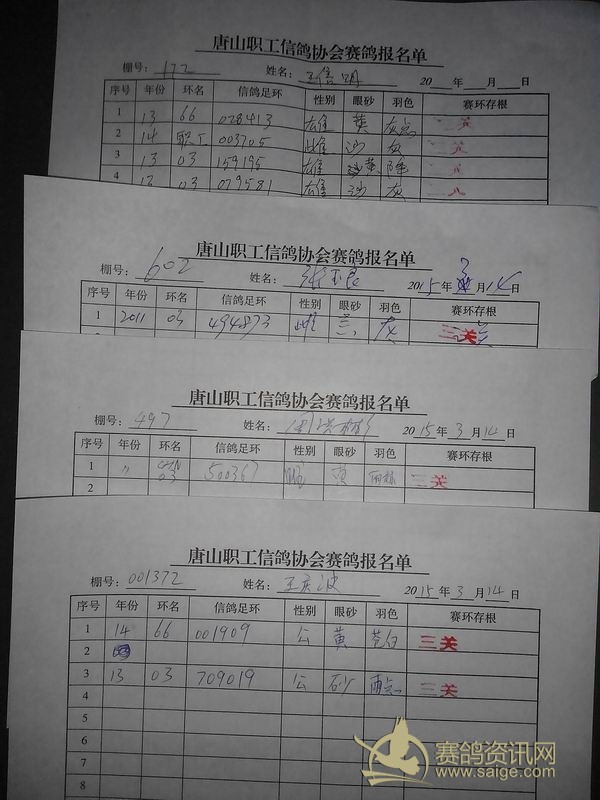 唐山职工信鸽协会赛鸽报名单
棚号: 172 姓名: 王信明 20 年 月 日
序号 年份 环名 信鸽足环 性别 眼砂 羽色 赛环存根
1 13 66 028413 雄 黄 灰点 二关
2 14 职工 003705 雌 沙 灰 二关
3 13 03 159195 雄
4 03 079581 雄 沙 灰
唐山职工信鸽协会赛鸽报名单
棚号: 602 姓名: 2015年 3月14日
序号 年份 环名 信鸽足环 性别 眼砂 羽色 赛环存根
1 2011 03 494873 雌 灰 三关
唐山职工信鸽协会赛鸽报名单
棚号: 497 姓名: 2015年 3月14日
序号 年份 环名 信鸽足环 性别 眼砂 羽色 赛环存根
1 〃 CHN 03 500367 三关
2
唐山职工信鸽协会赛鸽报名单
棚号: 001372 姓名: 王庆波 2015年 3月14日
序号 年份 环名 信鸽足环 性别 眼砂 羽色 赛环存根
1 14 66 001909 公 黄 三关
2
3 13 03 709019 公 砂 雨点 三关
4
5
6
7
8
赛鸽资讯网
www.saige.com